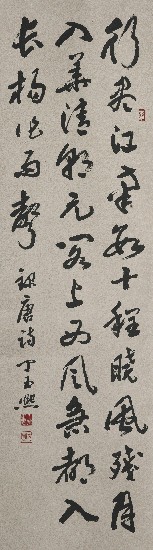 行盡江南數十程曉風殘月
入華清朝元閣上西風急都入
長楊作雨聲 録唐詩 丁玉熙